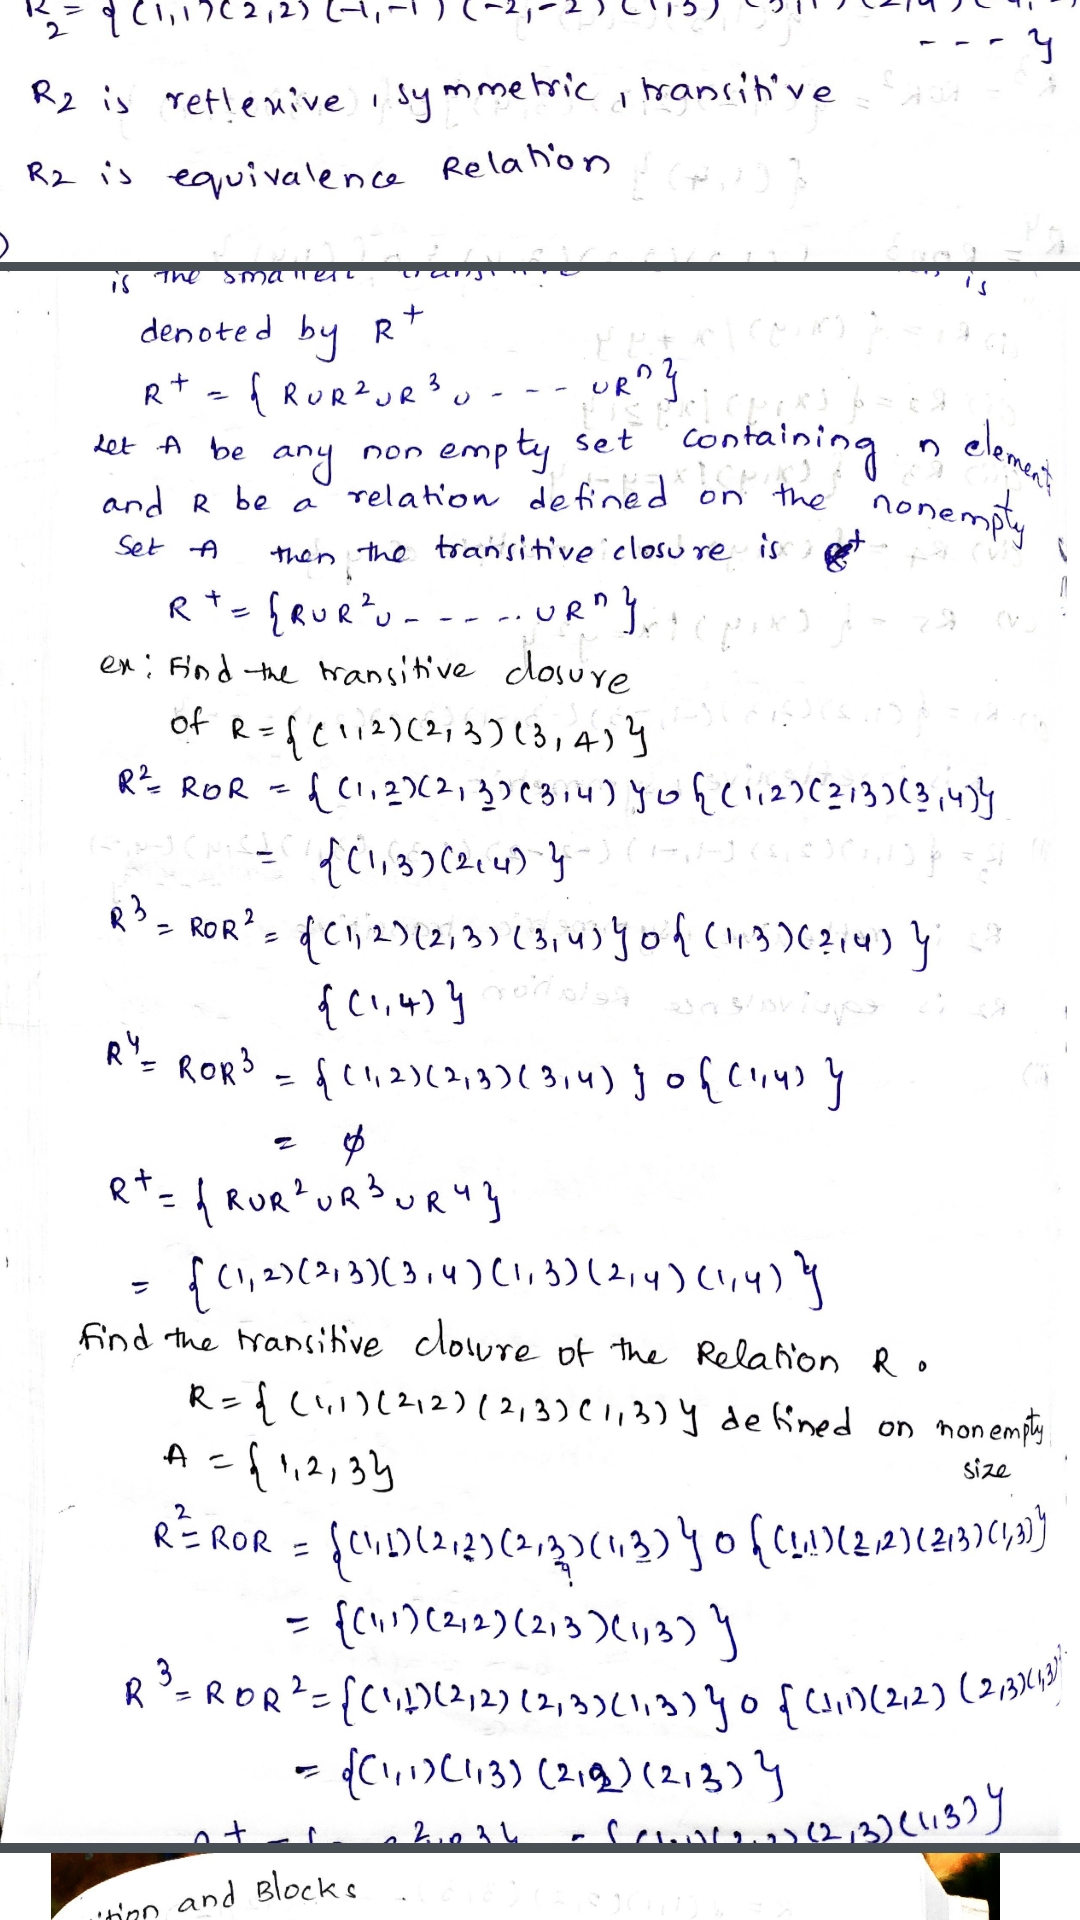 R2 = { (1,1) (2,2) (-1,-1) (-2,-2) (1,3)
- - - }
R2 is reflexive, symmetric, transitive
R2 is equivalence Relation
is the smallest is
denoted by R+
R+ = { R∪R²∪R³∪ - - - ∪Rⁿ}
Let A be any non empty set containing n element
and R be a relation defined on the nonempty
Set A then the transitive closure is
R+ = {R∪R²∪ - - - - .. ∪Rⁿ}
ex: Find the transitive closure
of R = { (1,2)(2,3)(3,4)}
R² = ROR = { (1,2)(2,3)(3,4) } o { (1,2)(2,3)(3,4)}
= {(1,3)(2,4)}
R³ = ROR² = {(1,2)(2,3)(3,4)} o { (1,3)(2,4) }
{ (1,4)}
R⁴ = ROR³ = { (1,2)(2,3)(3,4) } o { (1,4) }
= ∅
R+ = { R∪R²∪R³∪R⁴}
= { (1,2)(2,3)(3,4)(1,3)(2,4)(1,4)}
Find the transitive closure of the Relation R .
R = { (1,1)(2,2)(2,3)(1,3)} defined on nonempty
A = { 1,2,3} size
R² = ROR = {(1,1)(2,2)(2,3)(1,3)} o {(1,1)(2,2)(2,3)(1,3)}
= {(1,1)(2,2)(2,3)(1,3) }
R³ = ROR² = {(1,1)(2,2)(2,3)(1,3)} o {(1,1)(2,2)(2,3)(1,3)}
= {(1,1)(1,3)(2,2)(2,3)}
(2,3)(1,3)}
and Blocks